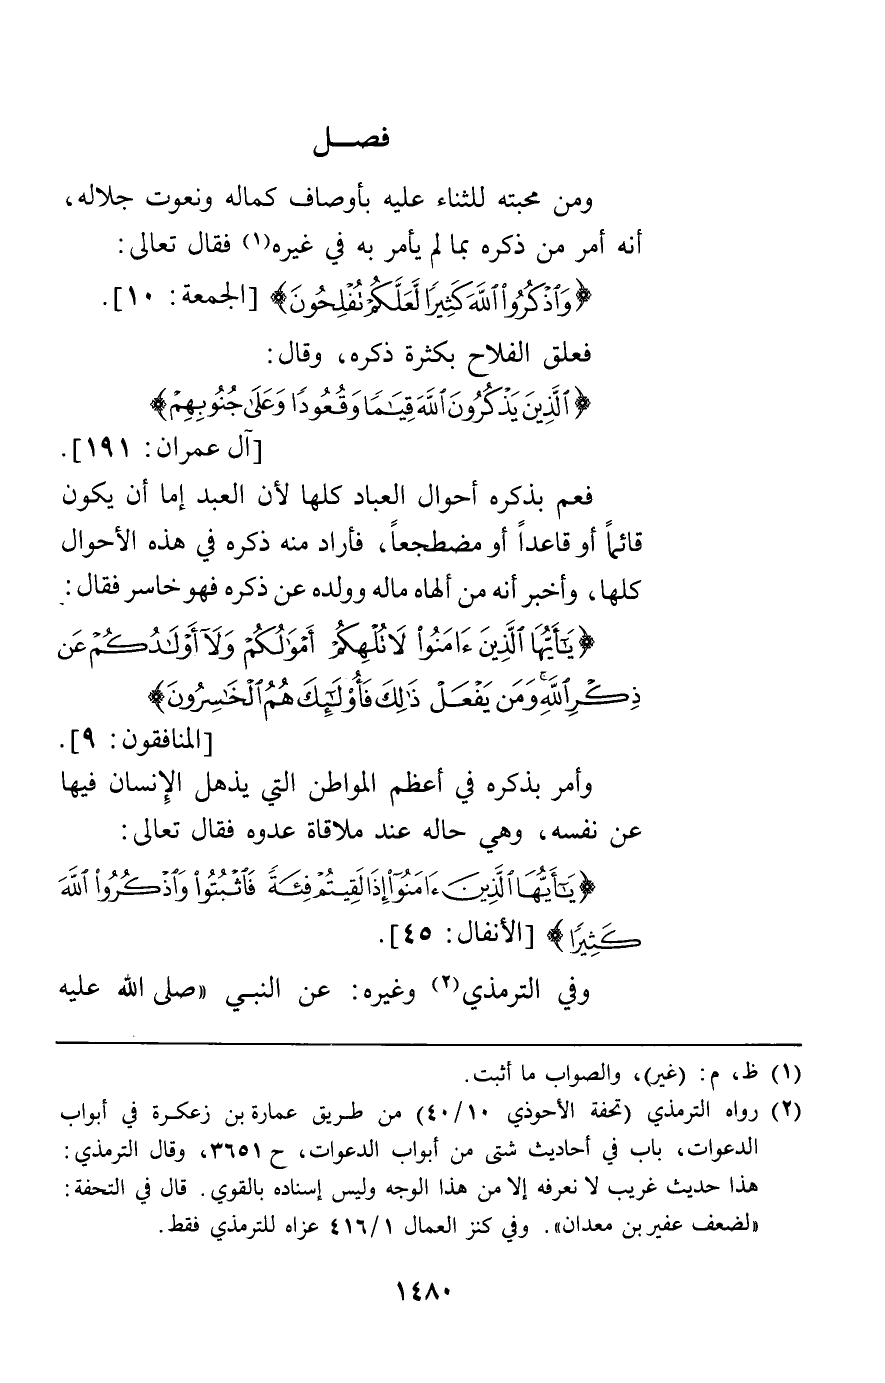 فصـــل
ومن محبته للثناء عليه بأوصاف كماله ونعوت جلاله،
أنه أمر من ذكره بما لم يأمر به في غيره(١) فقال تعالى:
﴿وَٱذْكُرُوا۟ ٱللَّهَ كَثِيرًا لَّعَلَّكُمْ تُفْلِحُونَ﴾ [الجمعة: ١٠].
فعلق الفلاح بكثرة ذكره، وقال:
﴿ٱلَّذِينَ يَذْكُرُونَ ٱللَّهَ قِيَـٰمًا وَقُعُودًا وَعَلَىٰ جُنُوبِهِمْ﴾
[آل عمران: ١٩١].
فعم بذكره أحوال العباد كلها لأن العبد إما أن يكون
قائماً أو قاعداً أو مضطجعاً، فأراد منه ذكره في هذه الأحوال
كلها، وأخبر أنه من ألهاه ماله وولده عن ذكره فهو خاسر فقال:
﴿يَـٰٓأَيُّهَا ٱلَّذِينَ ءَامَنُوا۟ لَا تُلْهِكُمْ أَمْوَٰلُكُمْ وَلَآ أَوْلَـٰدُكُمْ عَن
ذِكْرِ ٱللَّهِ ۚ وَمَن يَفْعَلْ ذَٰلِكَ فَأُو۟لَـٰٓئِكَ هُمُ ٱلْخَـٰسِرُونَ﴾
[المنافقون: ٩].
وأمر بذكره في أعظم المواطن التي يذهل الإنسان فيها
عن نفسه، وهي حاله عند ملاقاة عدوه فقال تعالى:
﴿يَـٰٓأَيُّهَا ٱلَّذِينَ ءَامَنُوٓا۟ إِذَا لَقِيتُمْ فِئَةً فَٱثْبُتُوا۟ وَٱذْكُرُوا۟ ٱللَّهَ
كَثِيرًا﴾ [الأنفال: ٤٥].
وفي الترمذي(٢) وغيره: عن النبي «صلى الله عليه
(١) ظ، م: (غير)، والصواب ما أثبت.
(٢) رواه الترمذي (تحفة الأحوذي ٤٠/١٠) من طريق عمارة بن زعكرة في أبواب
الدعوات، باب في أحاديث شتى من أبواب الدعوات، ح ٣٦٥١، وقال الترمذي:
هذا حديث غريب لا نعرفه إلا من هذا الوجه وليس إسناده بالقوي. قال في التحفة:
«لضعف عفير بن معدان». وفي كنز العمال ٤١٦/١ عزاه للترمذي فقط.
١٤٨٠